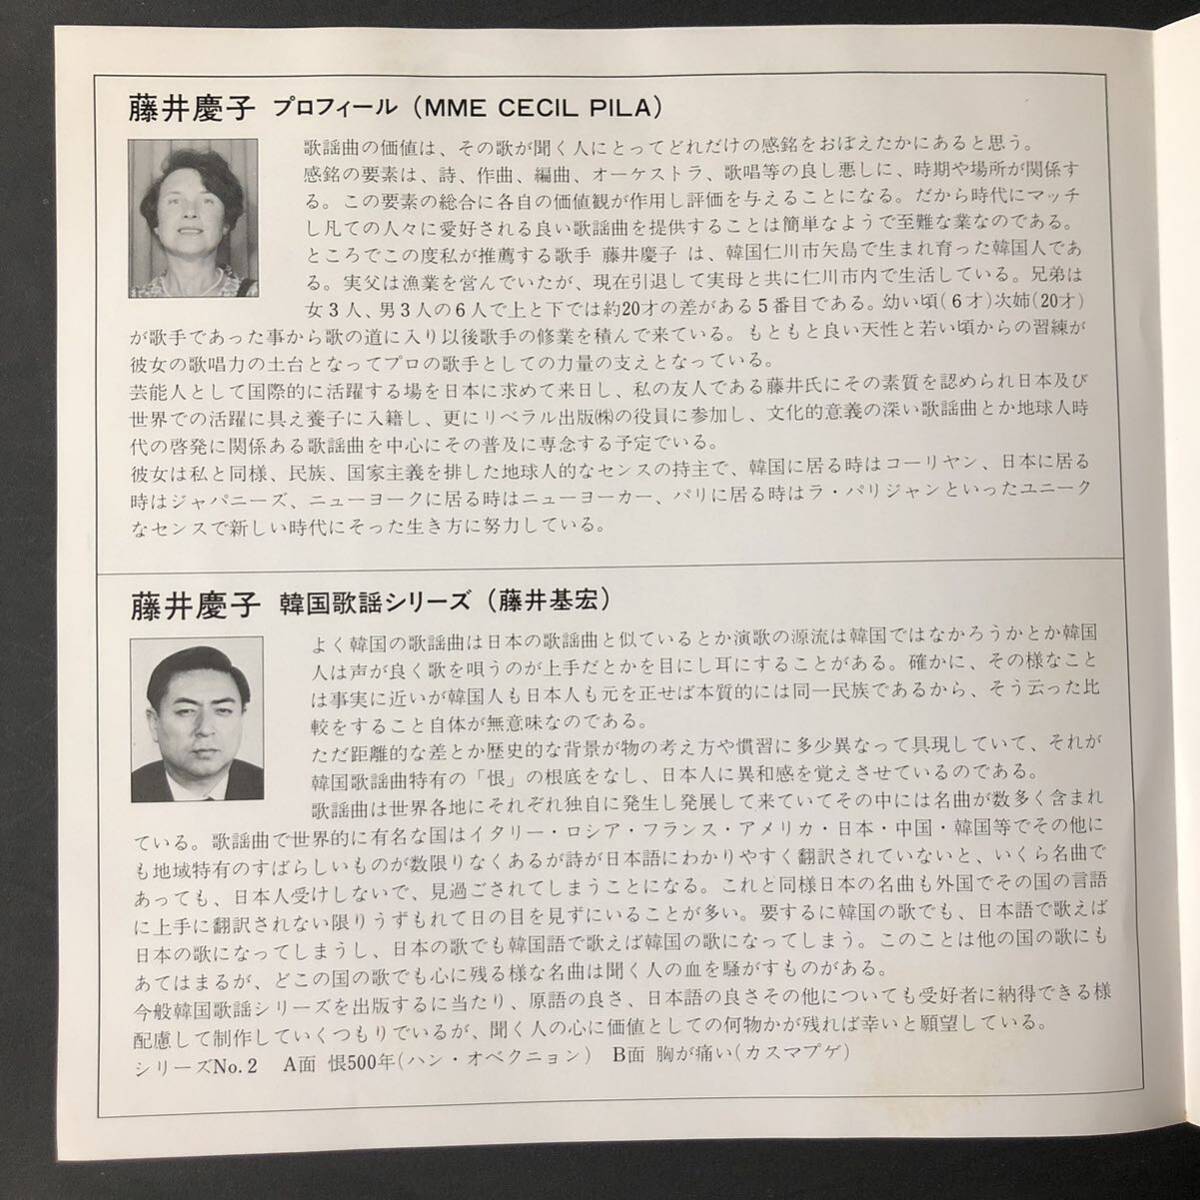 藤井慶子 プロフィール (MME CECIL PILA)
歌謡曲の価値は、その歌が聞く人にとってどれだけの感銘をおぼえたかにあると思う。
感銘の要素は、詩、作曲、編曲、オーケストラ、歌唱等の良し悪しに、時期や場所が関係す
る。この要素の総合に各自の価値観が作用し評価を与えることになる。だから時代にマッチ
し凡ての人々に愛好される良い歌謡曲を提供することは簡単なようで至難な業なのである。
ところでこの度私が推薦する歌手 藤井慶子 は、韓国仁川市矢島で生まれ育った韓国人であ
る。実父は漁業を営んでいたが、現在引退して実母と共に仁川市内で生活している。兄弟は
女3人、男3人の6人で上と下では約20才の差がある5番目である。幼い頃(6才)次姉(20才)
が歌手であった事から歌の道に入り以後歌手の修業を積んで来ている。もともと良い天性と若い頃からの習練が
彼女の歌唱力の土台となってプロの歌手としての力量の支えとなっている。
芸能人として国際的に活躍する場を日本に求めて来日し、私の友人である藤井氏にその素質を認められ日本及び
世界での活躍に具え養子に入籍し、更にリベラル出版㈱の役員に参加し、文化的意義の深い歌謡曲とか地球人時
代の啓発に関係ある歌謡曲を中心にその普及に専念する予定でいる。
彼女は私と同様、民族、国家主義を排した地球人的なセンスの持主で、韓国に居る時はコーリヤン、日本に居る
時はジャパニーズ、ニューヨークに居る時はニューヨーカー、パリに居る時はラ・パリジャンといったユニーク
なセンスで新しい時代にそった生き方に努力している。
藤井慶子 韓国歌謡シリーズ (藤井基宏)
よく韓国の歌謡曲は日本の歌謡曲と似ているとか演歌の源流は韓国ではなかろうかとか韓国
人は声が良く歌を唄うのが上手だとかを目にし耳にすることがある。確かに、その様なこと
は事実に近いが韓国人も日本人も元を正せば本質的には同一民族であるから、そう云った比
較をすること自体が無意味なのである。
ただ距離的な差とか歴史的な背景が物の考え方や慣習に多少異なって具現していて、それが
韓国歌謡曲特有の「恨」の根底をなし、日本人に異和感を覚えさせているのである。
歌謡曲は世界各地にそれぞれ独自に発生し発展して来ていてその中には名曲が数多く含まれ
ている。歌謡曲で世界的に有名な国はイタリー・ロシア・フランス・アメリカ・日本・中国・韓国等でその他に
も地域特有のすばらしいものが数限りなくあるが詩が日本語にわかりやすく翻訳されていないと、いくら名曲で
あっても、日本人受けしないで、見過ごされてしまうことになる。これと同様日本の名曲も外国でその国の言語
に上手に翻訳されない限りうずもれて日の目を見ずにいることが多い。要するに韓国の歌でも、日本語で歌えば
日本の歌になってしまうし、日本の歌でも韓国語で歌えば韓国の歌になってしまう。このことは他の国の歌にも
あてはまるが、どこの国の歌でも心に残る様な名曲は聞く人の血を騒がすものがある。
今般韓国歌謡シリーズを出版するに当たり、原語の良さ、日本語の良さその他についても受好者に納得できる様
配慮して制作していくつもりでいるが、聞く人の心に価値としての何物かが残れば幸いと願望している。
シリーズNo.2 A面 恨500年(ハン・オベクニョン) B面 胸が痛い(カスマプゲ)